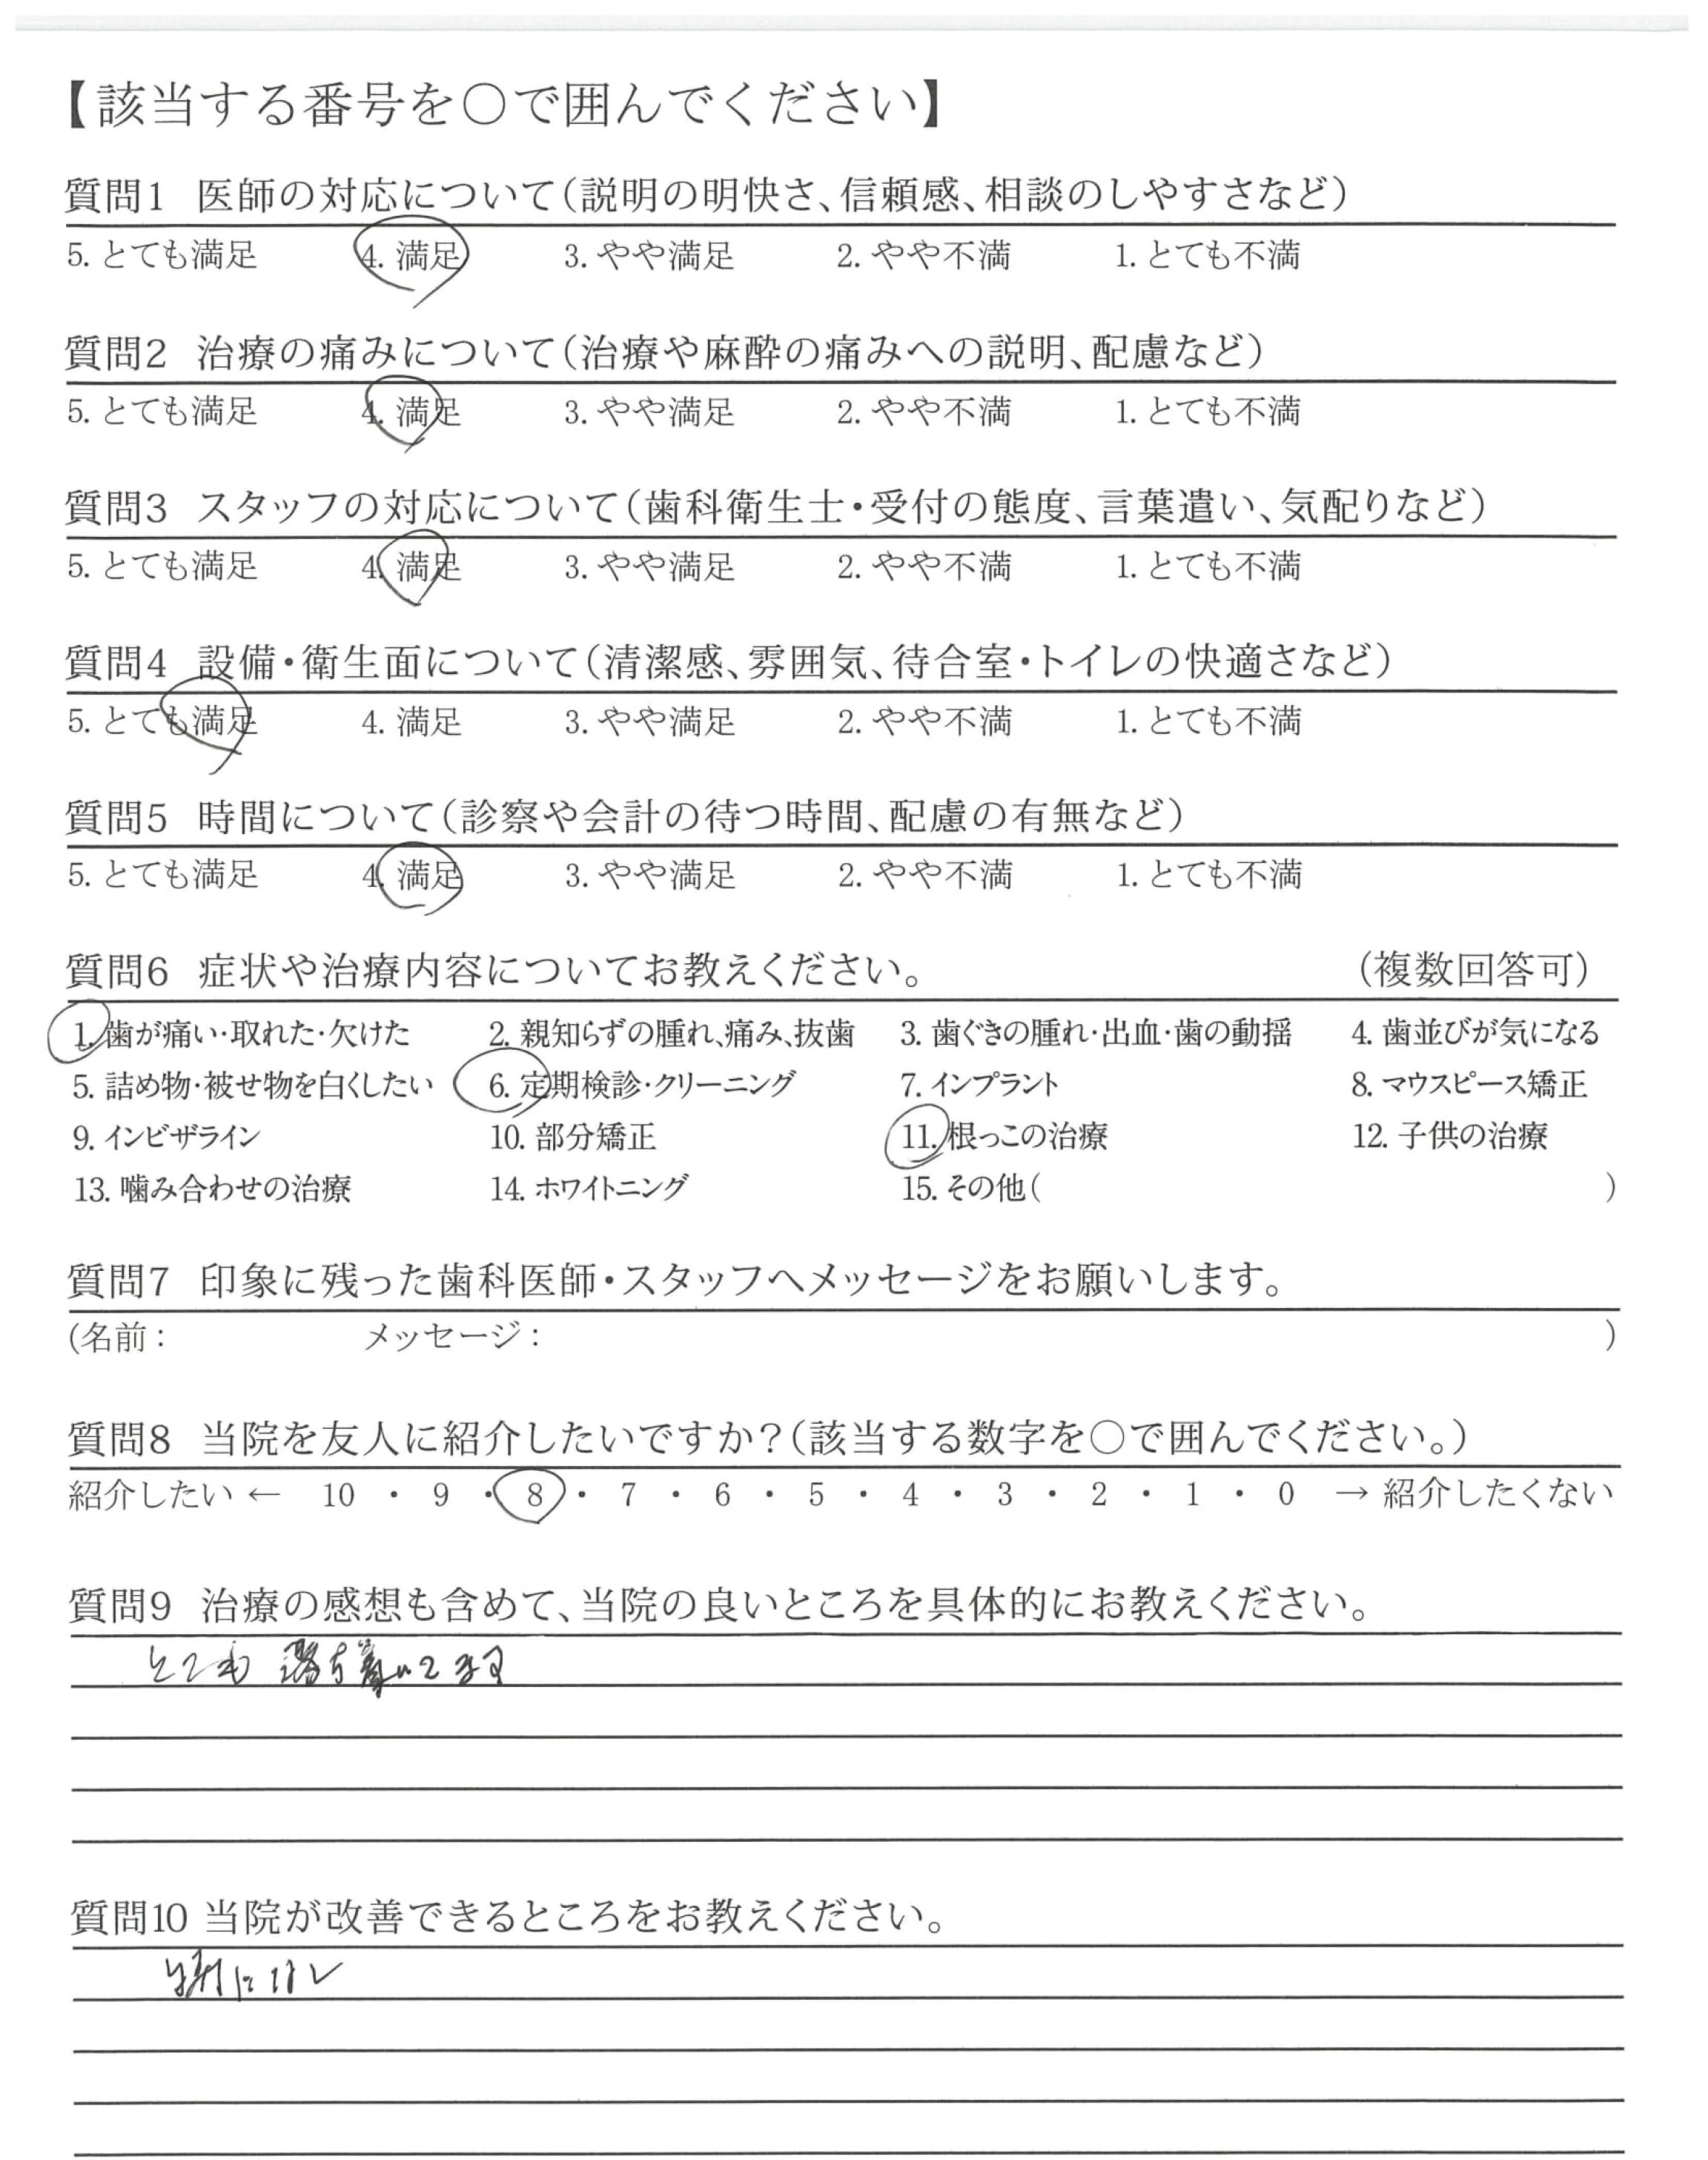 【該当する番号を○で囲んでください】
質問1 医師の対応について（説明の明快さ、信頼感、相談のしやすさなど）
5. とても満足 4. 満足 3. やや満足 2. やや不満 1. とても不満
質問2 治療の痛みについて（治療や麻酔の痛みへの説明、配慮など）
5. とても満足 4. 満足 3. やや満足 2. やや不満 1. とても不満
質問3 スタッフの対応について（歯科衛生士・受付の態度、言葉遣い、気配りなど）
5. とても満足 4. 満足 3. やや満足 2. やや不満 1. とても不満
質問4 設備・衛生面について（清潔感、雰囲気、待合室・トイレの快適さなど）
5. とても満足 4. 満足 3. やや満足 2. やや不満 1. とても不満
質問5 時間について（診察や会計の待つ時間、配慮の有無など）
5. とても満足 4. 満足 3. やや満足 2. やや不満 1. とても不満
質問6 症状や治療内容についてお教えください。 （複数回答可）
1. 歯が痛い・取れた・欠けた 2. 親知らずの腫れ、痛み、抜歯 3. 歯ぐきの腫れ・出血・歯の動揺 4. 歯並びが気になる
5. 詰め物・被せ物を白くしたい 6. 定期検診・クリーニング 7. インプラント 8. マウスピース矯正
9. インビザライン 10. 部分矯正 11. 根っこの治療 12. 子供の治療
13. 噛み合わせの治療 14. ホワイトニング 15. その他（ ）
質問7 印象に残った歯科医師・スタッフへメッセージをお願いします。
（名前： メッセージ： ）
質問8 当院を友人に紹介したいですか？（該当する数字を○で囲んでください。）
紹介したい ← 10 ・ 9 ・ 8 ・ 7 ・ 6 ・ 5 ・ 4 ・ 3 ・ 2 ・ 1 ・ 0 → 紹介したくない
質問9 治療の感想も含めて、当院の良いところを具体的にお教えください。
とても 落ち着いてます
質問10 当院が改善できるところをお教えください。
特になし